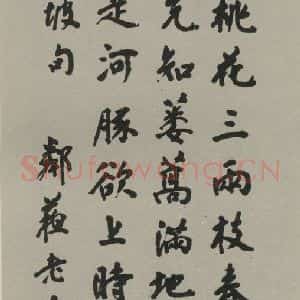 桃花三兩枝春
先知蒌蒿满地
是河豚欲上時
坡句
鄰蘓老
Shufawang.CN